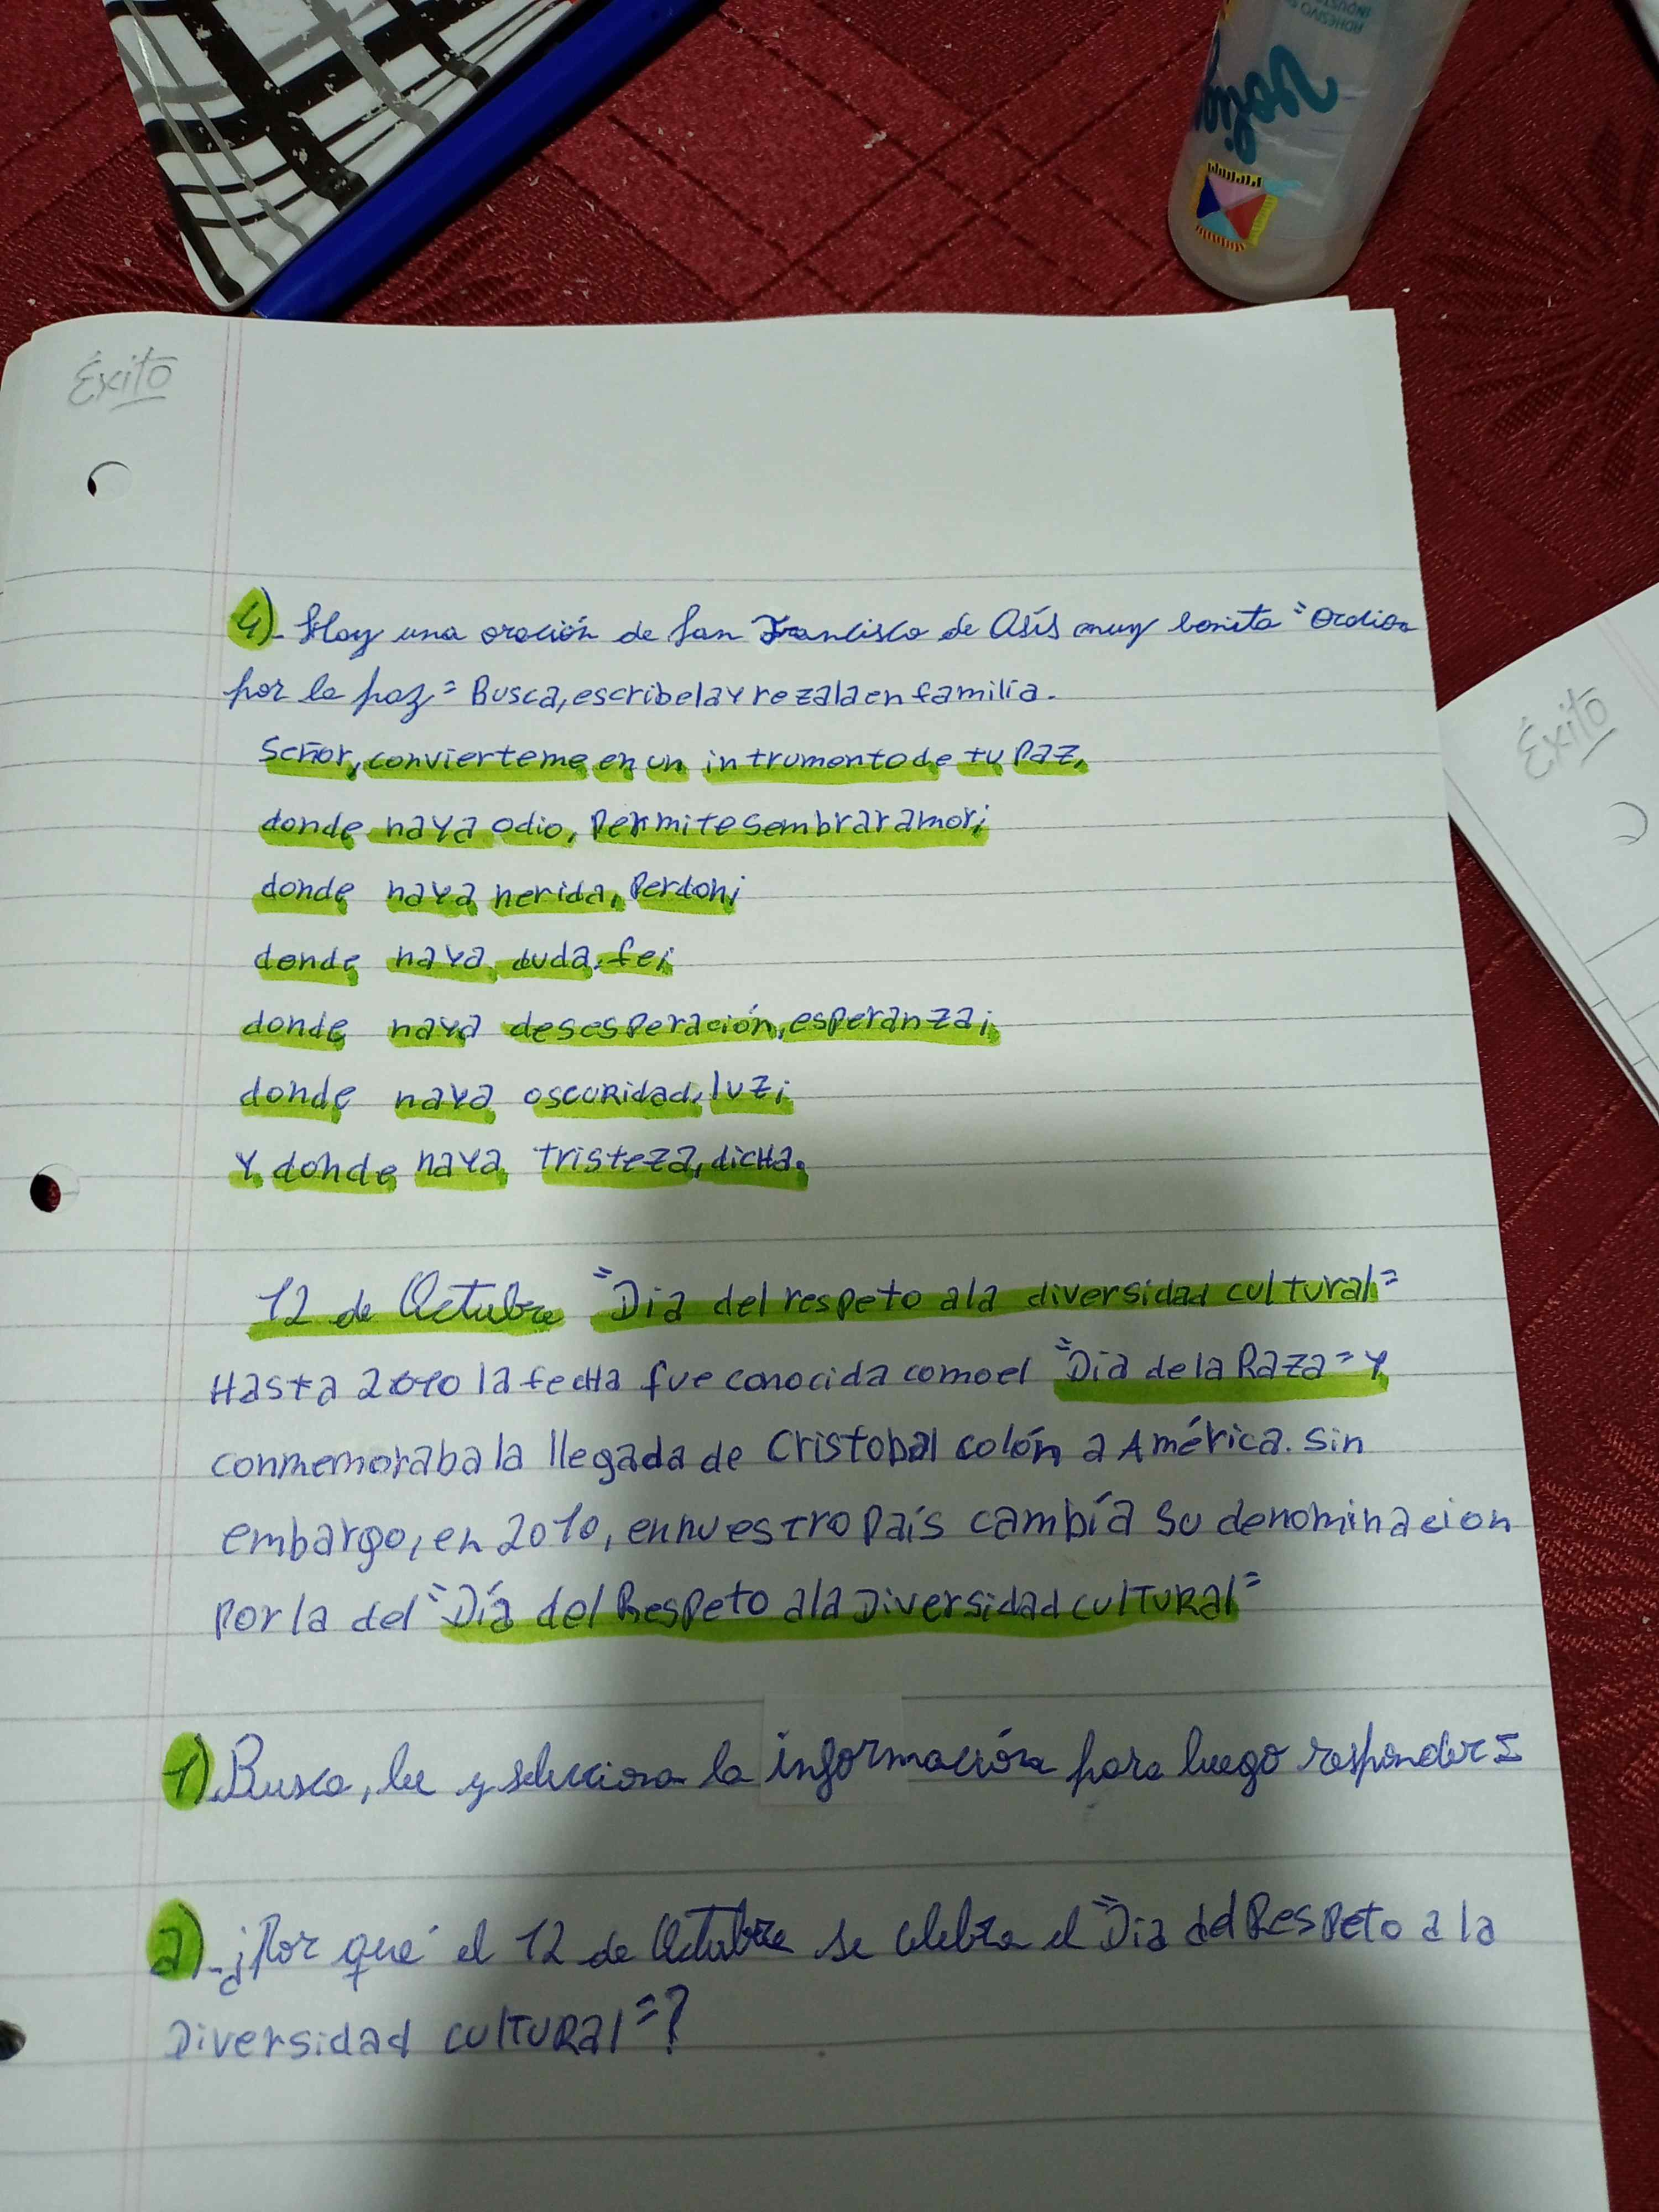 ADHESIVO
INDUST
Éxito
Éxito
4)- Hay una oración de San Francisco de Asís muy bonita "Oración
por la paz" Busca, escribela y rezala en familia.
Señor, convierteme en un intrumento de tu Paz,
donde haya odio, Permite sembrar amor;
donde haya herida, Perdon;
donde haya duda, fe;
donde haya desesperación, esperanza;
donde haya oscuridad, luz;
Y donde haya tristeza, dicha.
12 de Octubre "Dia del respeto a la diversidad cultural"
Hasta 2010 la fecha fue conocida como el "Dia de la Raza" Y
conmemoraba la llegada de Cristobal colón a América. Sin
embargo, en 2010, en nuestro País cambía su denominacion
Por la del "Día del Respeto a la Diversidad cultural"
1) Busca, lee y selecciona la información para luego responder:
a)-¿Por qué el 12 de Octubre se celebra el "Dia del Respeto a la
Diversidad cultural"?